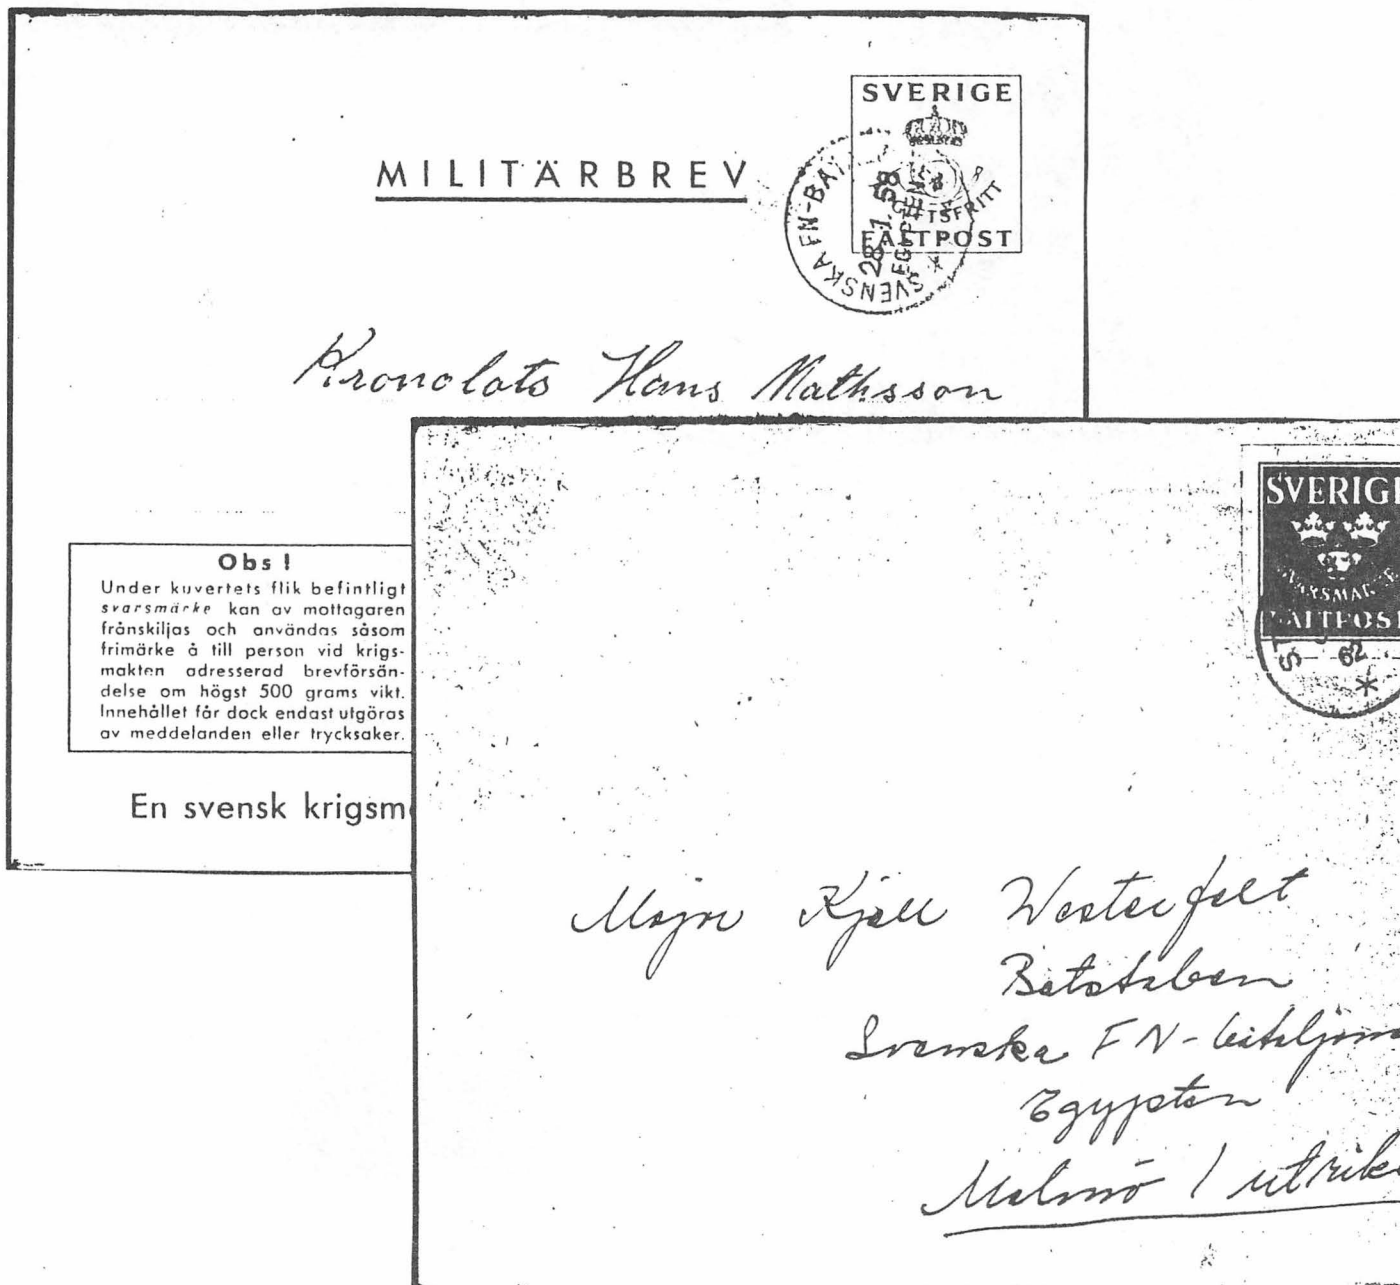 MILITÄRBREV
SVERIGE
AVGIFTSFRITT
FÄLTPOST
SVENSKA FN-BAT
28.1.58
EGYPTEN
Kronolots Hans Mathsson
Obs !
Under kuvertets flik befintligt
svarsmärke kan av mottagaren
frånskiljas och användas såsom
frimärke å till person vid krigs-
makten adresserad brevförsän-
delse om högst 500 grams vikt.
Innehållet får dock endast utgöras
av meddelanden eller trycksaker.
En svensk krigsm
SVERIGE
SVARSMÄRKE
FÄLTPOST
62
Major Kjell Westerfelt
Batstaben
Svenska FN-bataljonen
Egypten
Malmö 1 utrikes